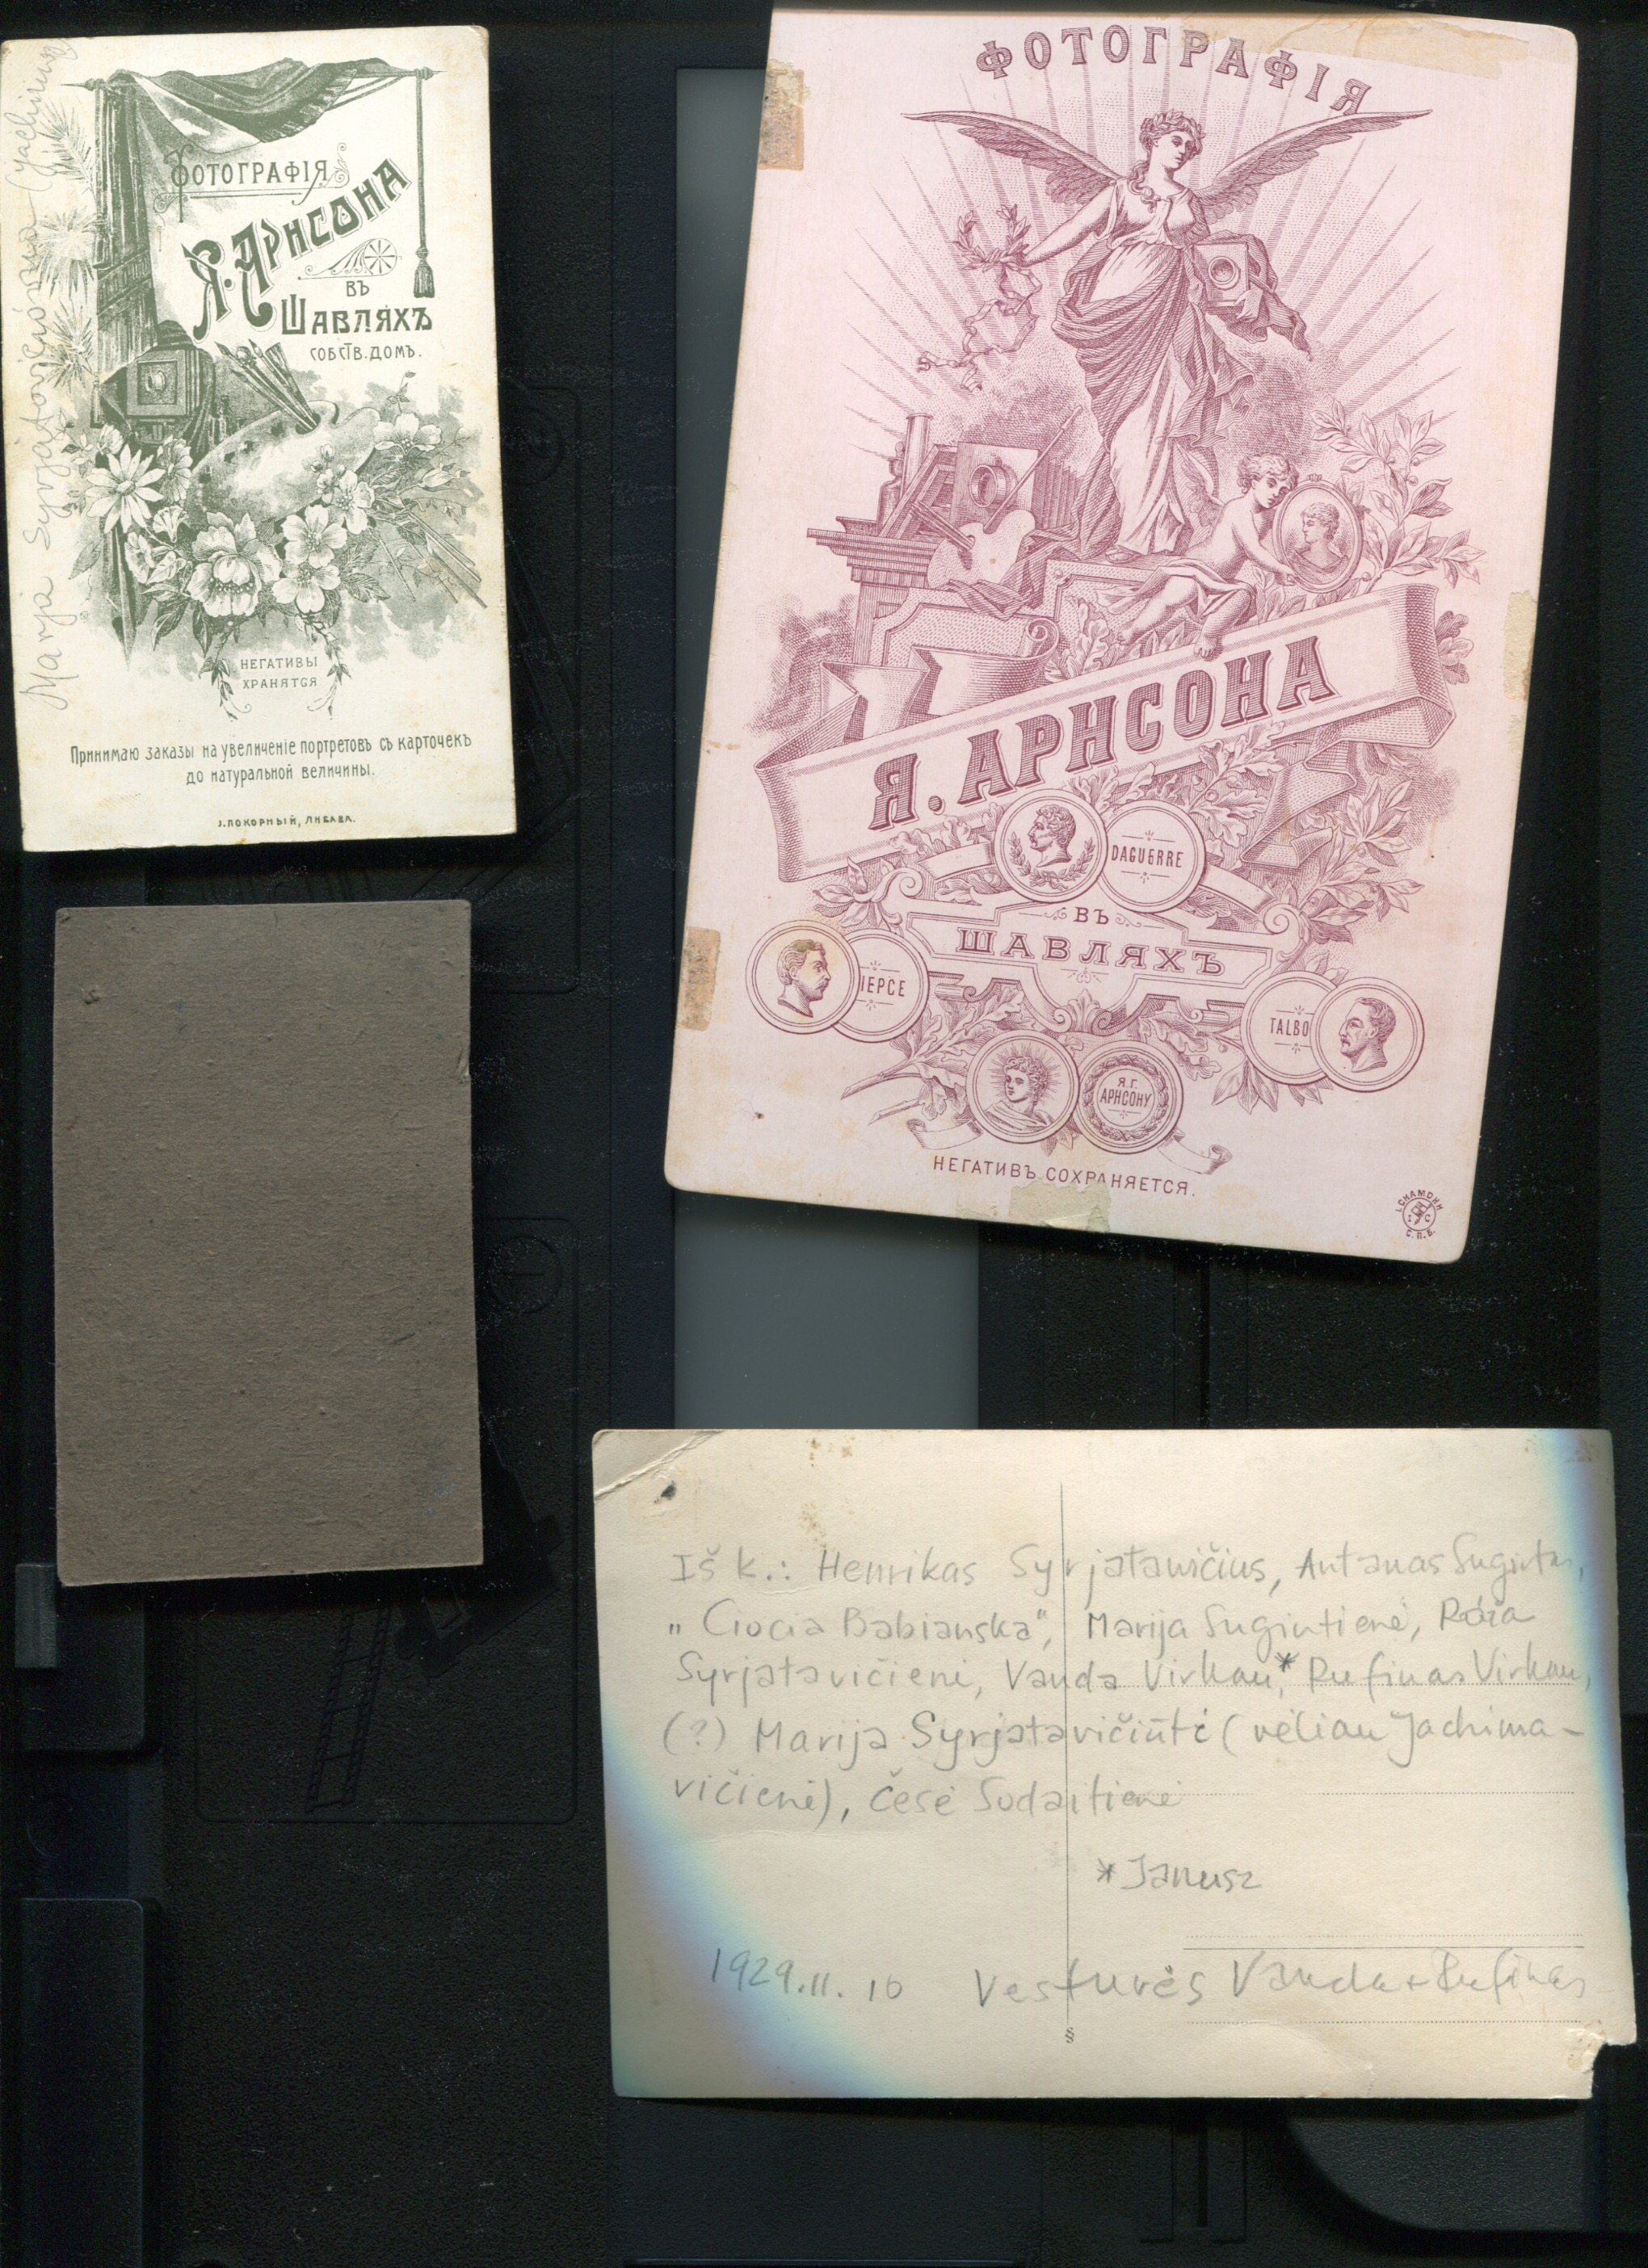 Фотографія
Я. Арнсона
въ
Шавляхъ
собств. домъ.
НЕГАТИВЫ
ХРАНЯТСЯ
Принимаю заказы на увеличеніе портретовъ съ карточекъ
до натуральной величины.
І. ПОКОРНЫЙ, ЛИБАВА.
Marija
ФОТОГРАФІЯ
Я. АРНСОНА
DAGUERRE
ВЪ
ШАВЛЯХЪ
IEPCE
TALBO
Я.Г.
АРНСОНУ
НЕГАТИВЪ СОХРАНЯЕТСЯ.
С.П.Б.
Iš k.: Henrikas Syrjatavičius, Antanas
"Ciocia Babianska", Marija Sugintienė, Róża
Syrjatavičienė, Vanda Virkau,* Rufinas Virkau,
(?) Marija Syrjatavičiūtė (vėliau Jachima-
vičienė), Česė Sudaitienė
*Janusz
1929.11.10 Vestuvės Vanda + Rufinas
§